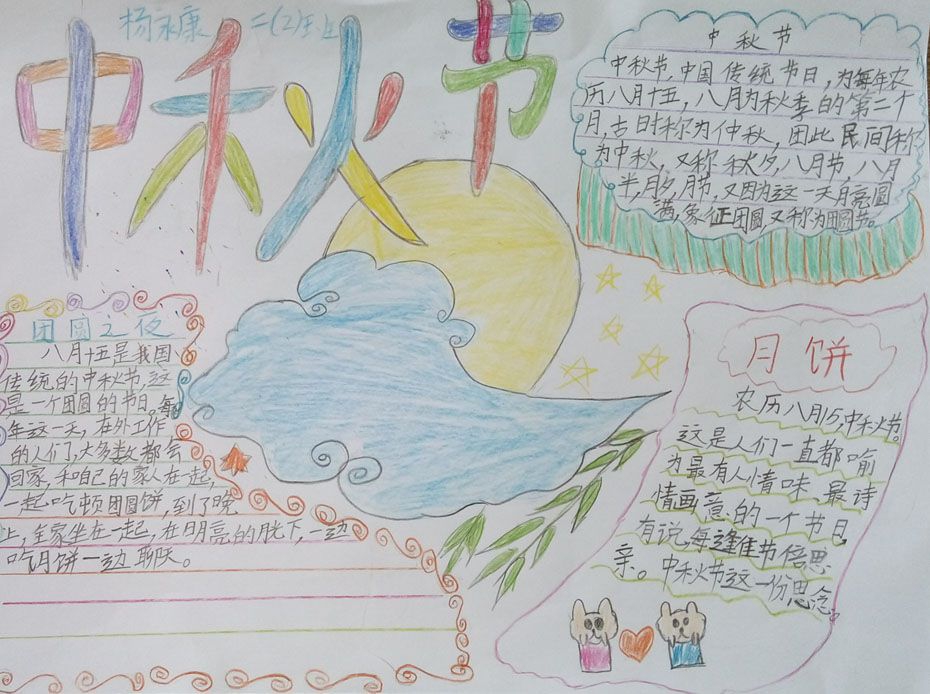 杨永康 二(2)班
中秋节
中秋节
中秋节,中国传统节日,为每年农
历八月十五,八月为秋季的第二个
月,古时称为仲秋,因此民间称
为中秋,又称秋夕,八月节,八月
半,月夕,月节,又因为这一天月亮圆
满,象征团圆,又称为团圆节。
团圆之夜
八月十五是我国
传统的中秋节,这
是一个团圆的节日。每
年这一天,在外工作
的人们,大多数都会
回家,和自己的家人在一起,
一起吃顿团圆饼,到了晚
上,全家坐在一起,在明亮的胱下,一边
吃月饼一边聊天。
月饼
农历八月15,中秋节。
这是人们一直都喻
为最有人情味、最诗
情画意的一个节日,
有说每逢佳节倍思
亲。中秋节这一份思念。